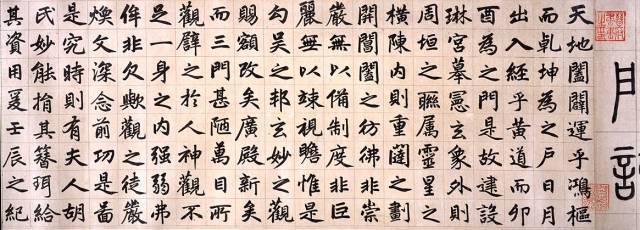 天地闔闢運乎鴻樞
而乾坤為之戶日月
出入經乎黃道而卯
酉為之門是故建設
琳宮摹憲玄象外則
周垣之聯属靈星之
橫陳內則重闥之劃
開閶闔之彷彿非崇
嚴無以備制度非巨
麗無以竦視瞻惟是
勾吳之邦玄妙之觀
賜額改矣廣殿新矣
而三門甚陋萬目所
觀譬之於人神觀不
足一身之内强弱弗
侔非欠歟觀之徒嚴
煥文深念前功是啚
是究時則有夫人胡
氏妙能捐其簪珥給
其資用爰壬辰之紀